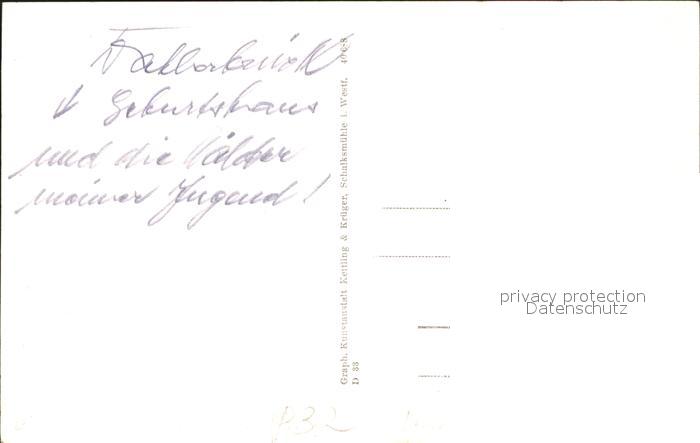 Geburtshaus
und die Wälder
meiner Jugend!
Graph. Kunstanstalt Kettling & Krüger, Schalksmühle i. Westf.
D 33
privacy protection
Datenschutz